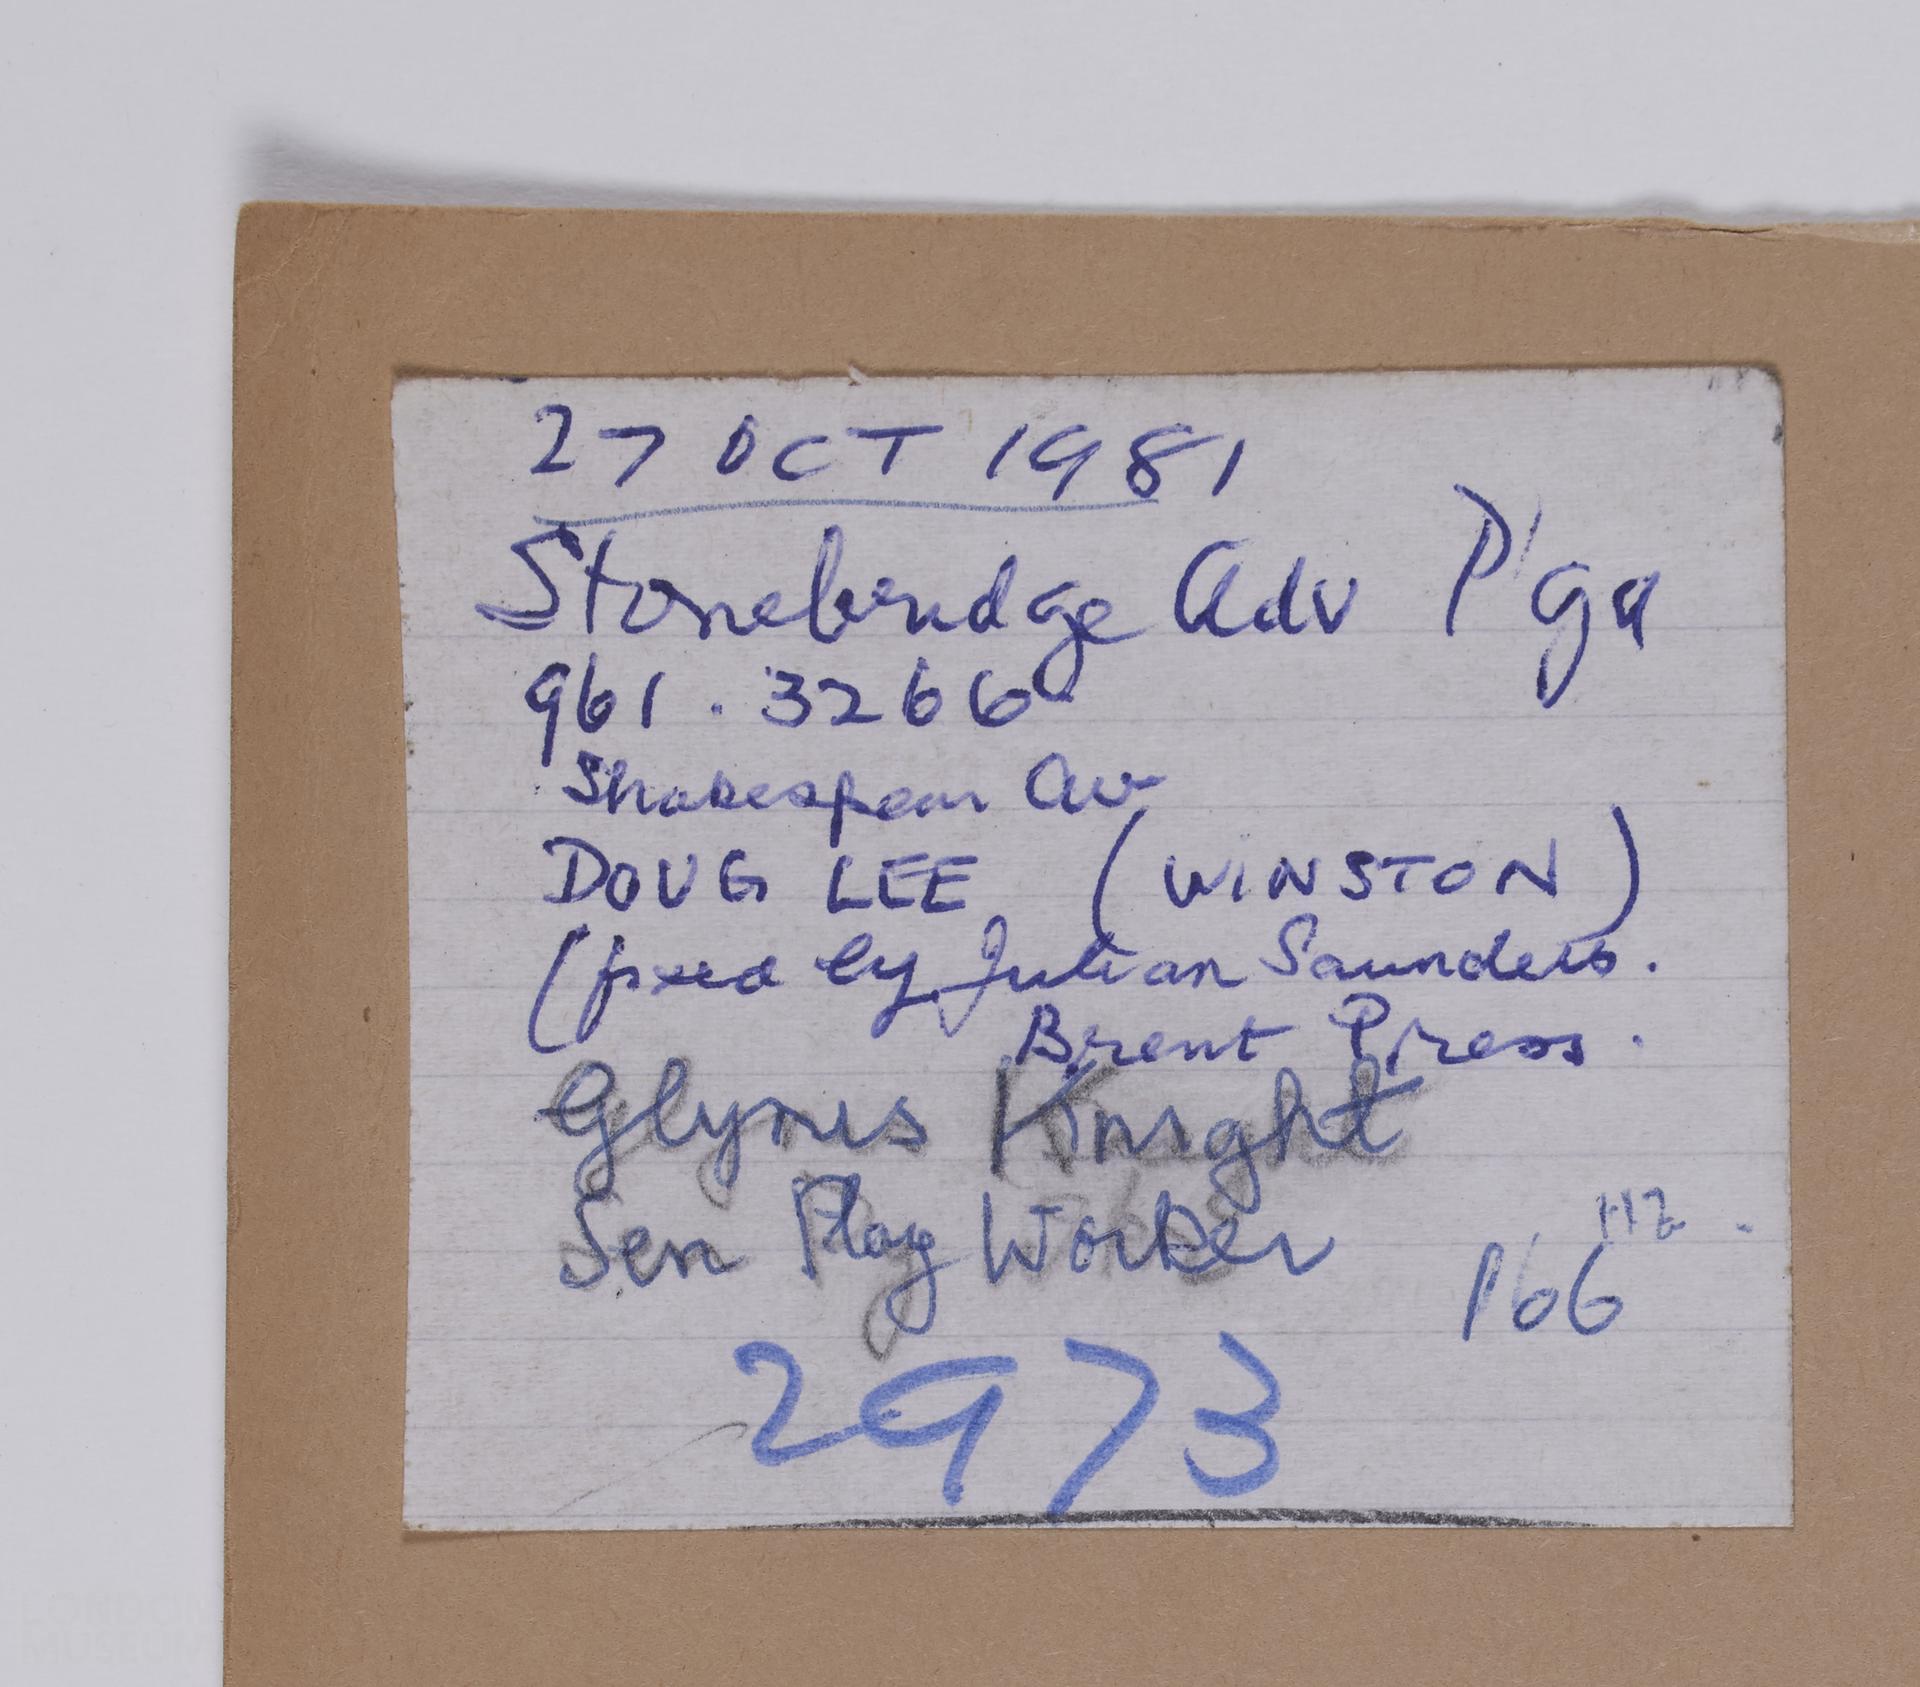 27 OCT 1981
Stonebridge Adv P'gd
961.3266
Shakespear Av
DOUG LEE (WINSTON)
(fixed by Julian Saunders.
Brent Press.
Glynis Knight
Sen Play Worker
HZ
166
2973
LONDON
MUSEUM